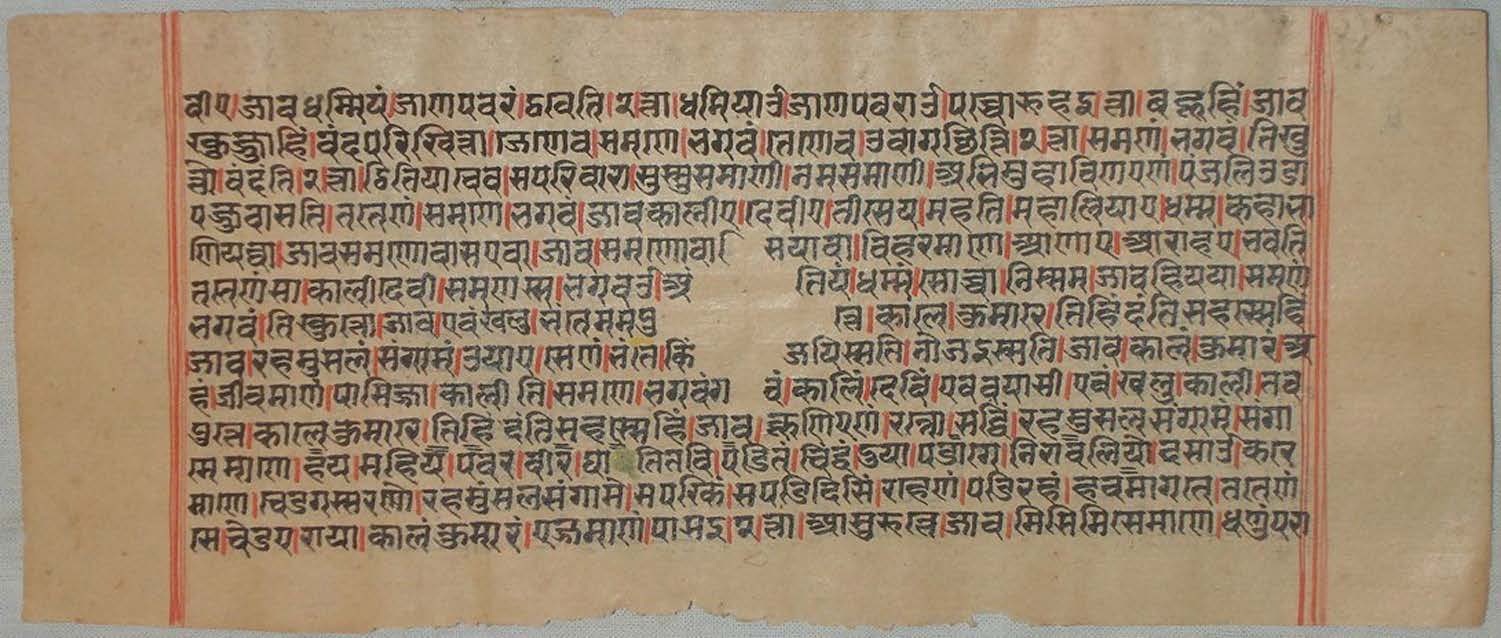 वीए।जाव।धम्मियं।जाणपवरं।दुरुवति।२त्ता।धम्मियाउ।जाणपवराउ।पच्चोरुहइ।२त्ता।बहूहिं।जाव
खुज्जाहिं।वंदपरिखित्ता।जेणेव।समणे।भगवं।तेणेव।उवागच्छति।२त्ता।समणं।भगवं।तिखु
त्तो।वंदंति।२त्ता।ठितियाचेव।सपरिवारा।सुस्सुसमाणी।नमंसमाणी।अभिमुहा।विणएणं।पंजलिउडा
पज्जुवासति।ततेणं।समणे।भगवं।जाव।कालीए।देवीए।तीसेय।महति।महालियाए।धम्म।कहा।भा
णियव्वा।जाव।समणोवासएवा।जाव।समणोवासियावा।विहरमाणे।आणाए।आराहए।भवति
ततेणं।सा।काली।देवी।समणस्स।भगवउ।अंतियं।धम्मं।सोच्चा।निसम्म।जाव।हियया।समणं
भगवं।तिखुत्तो।जाव।एवं।खलु।भंते।मम।पुत्ते।काले।कुमारे।तिहिं।दंति।सहस्सेहिं
जाव।रहमुसलं।संगामं।उयाए।सेणं।भंते।किं जयिस्सति।नोजइस्सति।जाव।कालं।कुमारं।अ
हं।जीवमाणं।पासिज्जा।काली।ति।समणे।भगवं।कालिं।देविं।एवंवयासी।एवं।खलु।काली।तव
पुत्ते।काले।कुमारे।तिहिं।दंतिसहस्सेहिं।जाव।कूणिएणं।रन्ना।सद्धिं।रहमुसलं।संगामं।संगा
मेमाणे।हय।महिय।पवर।वीर।घातितनिवडितचिंधद्धयपडागे।निरालोयाउ।दिसाउ।करे
माणे।चेडगस्स।रणो।रहमुसलसंगामे।सपरिक।सपडिदिसिं।रहेणं।पडिरहं।हव्वमागते।ततेणं
से।चेडए।राया।कालं।कुमारं।एज्जमाणं।पासइ।२त्ता।आसुरुत्ते।जाव।मिसिमिसेमाणे।धणुंपरा